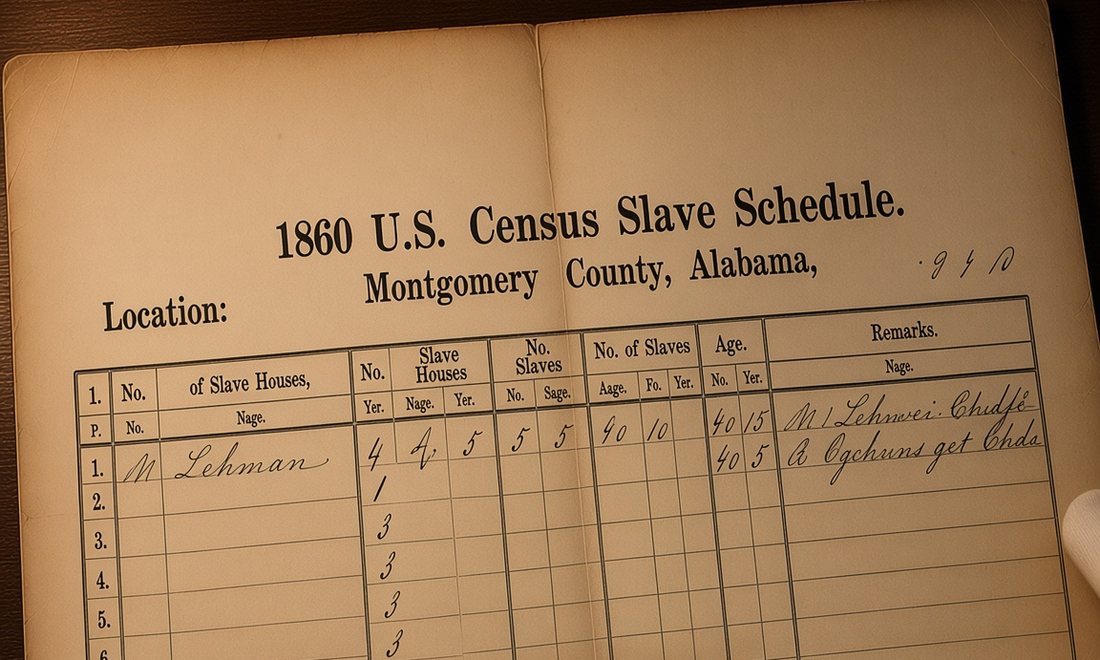 1860 U.S. Census Slave Schedule.
Montgomery County, Alabama,
Location:
1. No. of Slave Houses, No. Slave Houses No. Slaves No. of Slaves Age. Remarks.
P. No. Nage. Yer. Nage. Yer. No. Sage. Aage. Fo. Yer. No. Yer. Nage.
1. M Lehman 4 5 5 5 90 10 40 15 M
2. 1 40 5 get
3. 3
4. 3
5. 3
6. 3